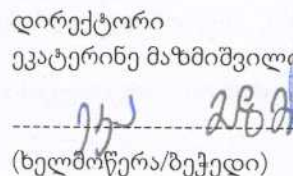 დირექტორი
ეკატერინე მაზმიშვილი
(ხელმოწერა/ბეჭედი)